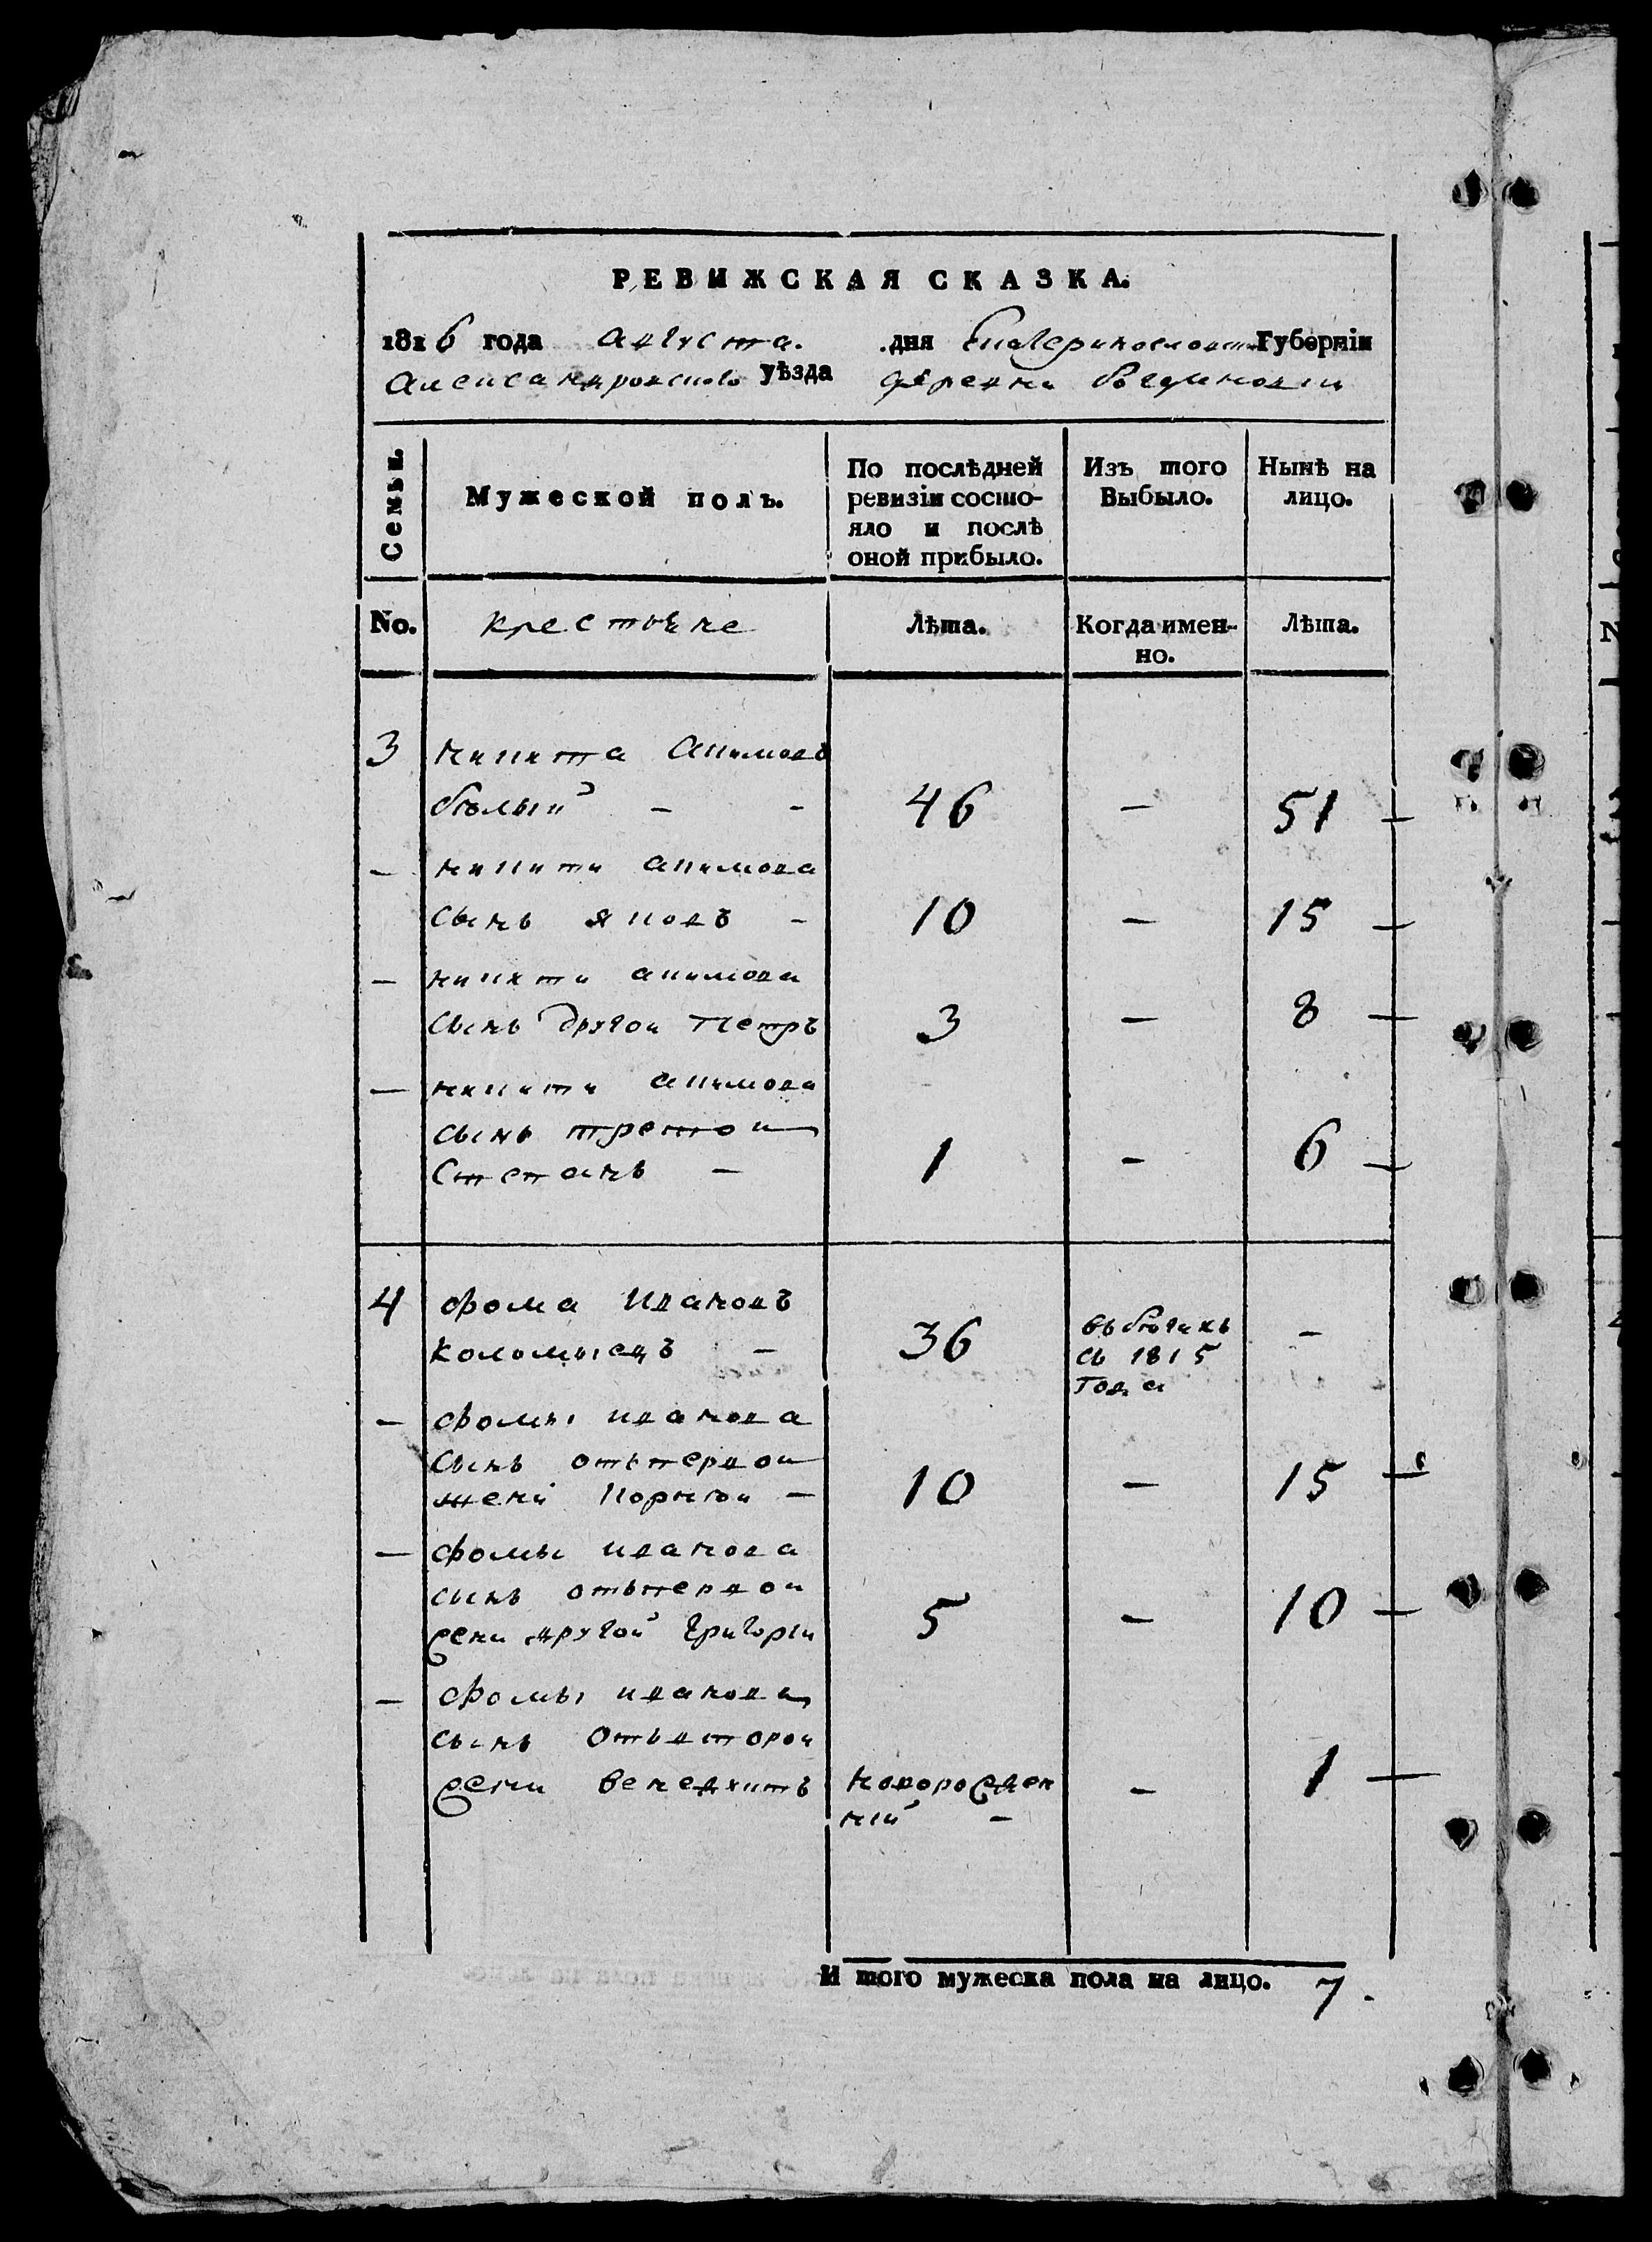 РЕВИЖСКАЯ СКАЗКА.
1816 года августа. дня Екатеринославской Губернїи
Александровского уѣзда деревни Богдановки
Семьи.
Мужеской полъ.
По послѣдней ревизїи состояло и послѣ оной прибыло.
Изъ того Выбыло.
Нынѣ на лицо.
No.
крестьяне
Лѣта.
Когда именно.
Лѣта.
3 никита акимовъ
бѣлый - - 46 - 51
- никиты акимова
сынъ яковъ - 10 - 15
- никиты акимова
сынъ другои петръ 3 - 8
- никиты акимова
сынъ третои
степанъ - 1 - 6
4 фома ивановъ
коломыецъ - 36 въ бѣгахъ съ 1815 года -
- фомы иванова
сынъ отъ первои
жены Корнѣи - 10 - 15
- фомы иванова
сынъ отъ первои
жены другой григорїи 5 - 10
- фомы иванова
сынъ отъ второи
жены венедиктъ новорожден - 1
ный -
И того мужеска пола на лицо. 7.